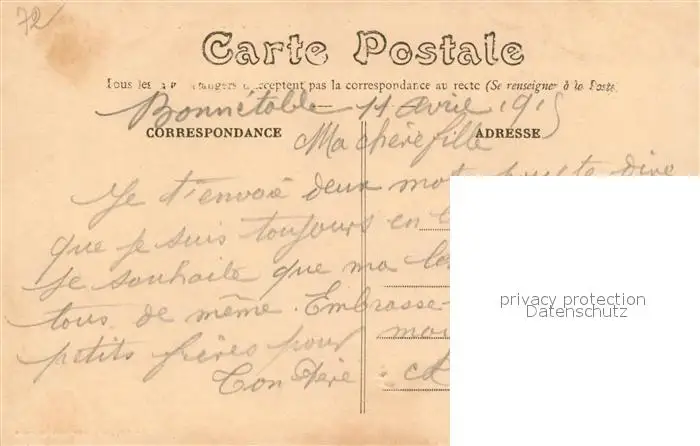 72
Carte Postale
Tous les pays étrangers n'acceptent pas la correspondance au recto (Se renseigner à la Poste)
Bonnétable 11 avril 1915
CORRESPONDANCE
ADRESSE
Ma chère fille
Je t'envoie deux mot pour te dire
que je suis toujours en
Je souhaite que ma
tous de même. Embrasse-
petits frères pour moi
Ton Père :
privacy protection
Datenschutz